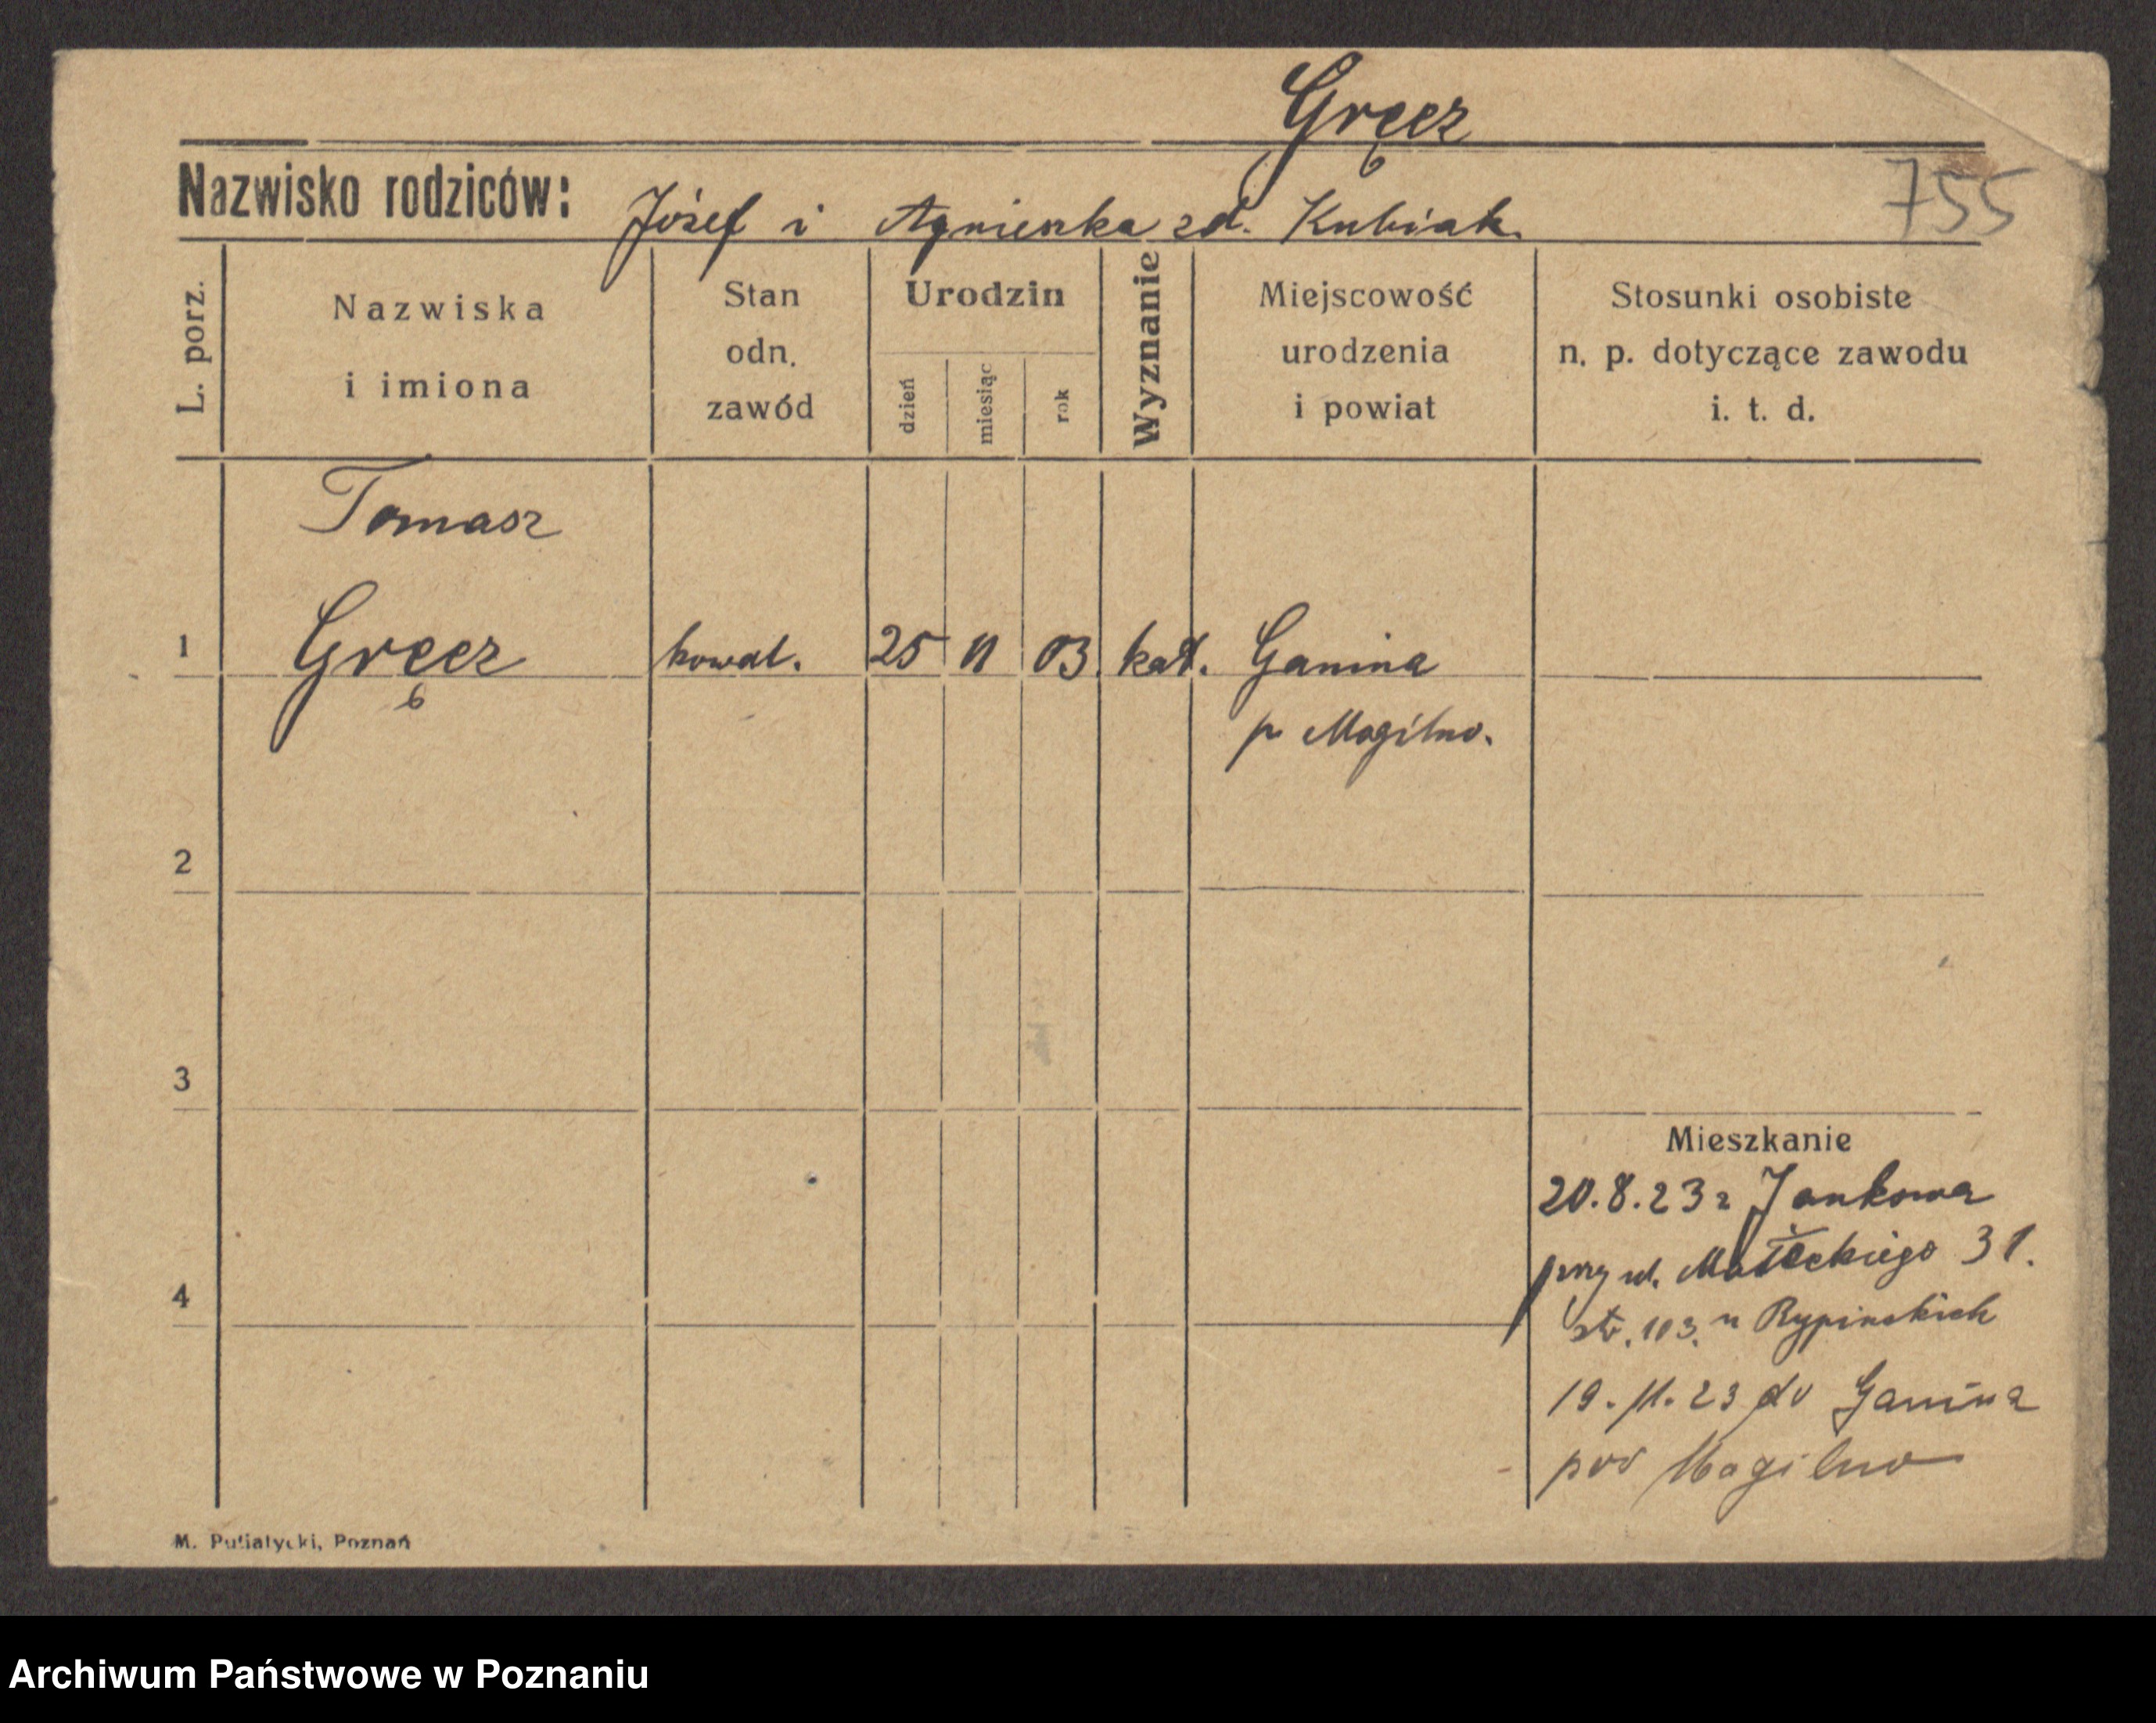 Gręcz
Nazwisko rodziców: Józef i Agnieszka zd. Kubiak.
755
L. porz.
Nazwiska
i imiona
Stan
odn.
zawód
Urodzin
dzień
miesiąc
rok
Wyznanie
Miejscowość
urodzenia
i powiat
Stosunki osobiste
n. p. dotyczące zawodu
i. t. d.
Tomasz
1 Gręcz kowal. 25 11 03. kat. Ganina
p Mogilno.
2
3
4
Mieszkanie
20.8.23 z Jankowa
przy ul. Małeckiego 31.
str. 103. u Rypinskich
19.11.23 do Ganina
pow Mogilno
M. Putiatycki, Poznań
Archiwum Państwowe w Poznaniu